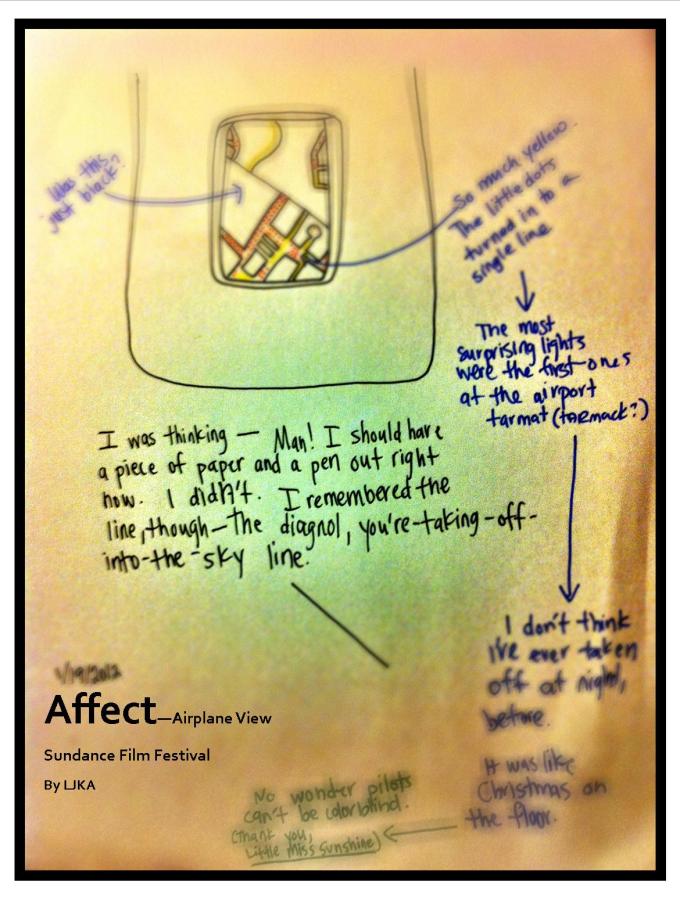 Was this
just black?
So much yellow.
The little dots
turned in to a
single line
The most
surprising lights
were the first ones
at the airport
tarmat (tarmack?)
I was thinking — Man! I should have
a piece of paper and a pen out right
now. I didn't. I remembered the
line, though—The diagnol, you're-taking-off-
into-the-sky line.
I don't think
I've ever taken
off at night,
before.
It was like
Christmas on
the floor.
No wonder pilots
can't be colorblind.
(Thank you,
Little Miss Sunshine)
1/19/2012
Affect—Airplane View
Sundance Film Festival
By LJKA